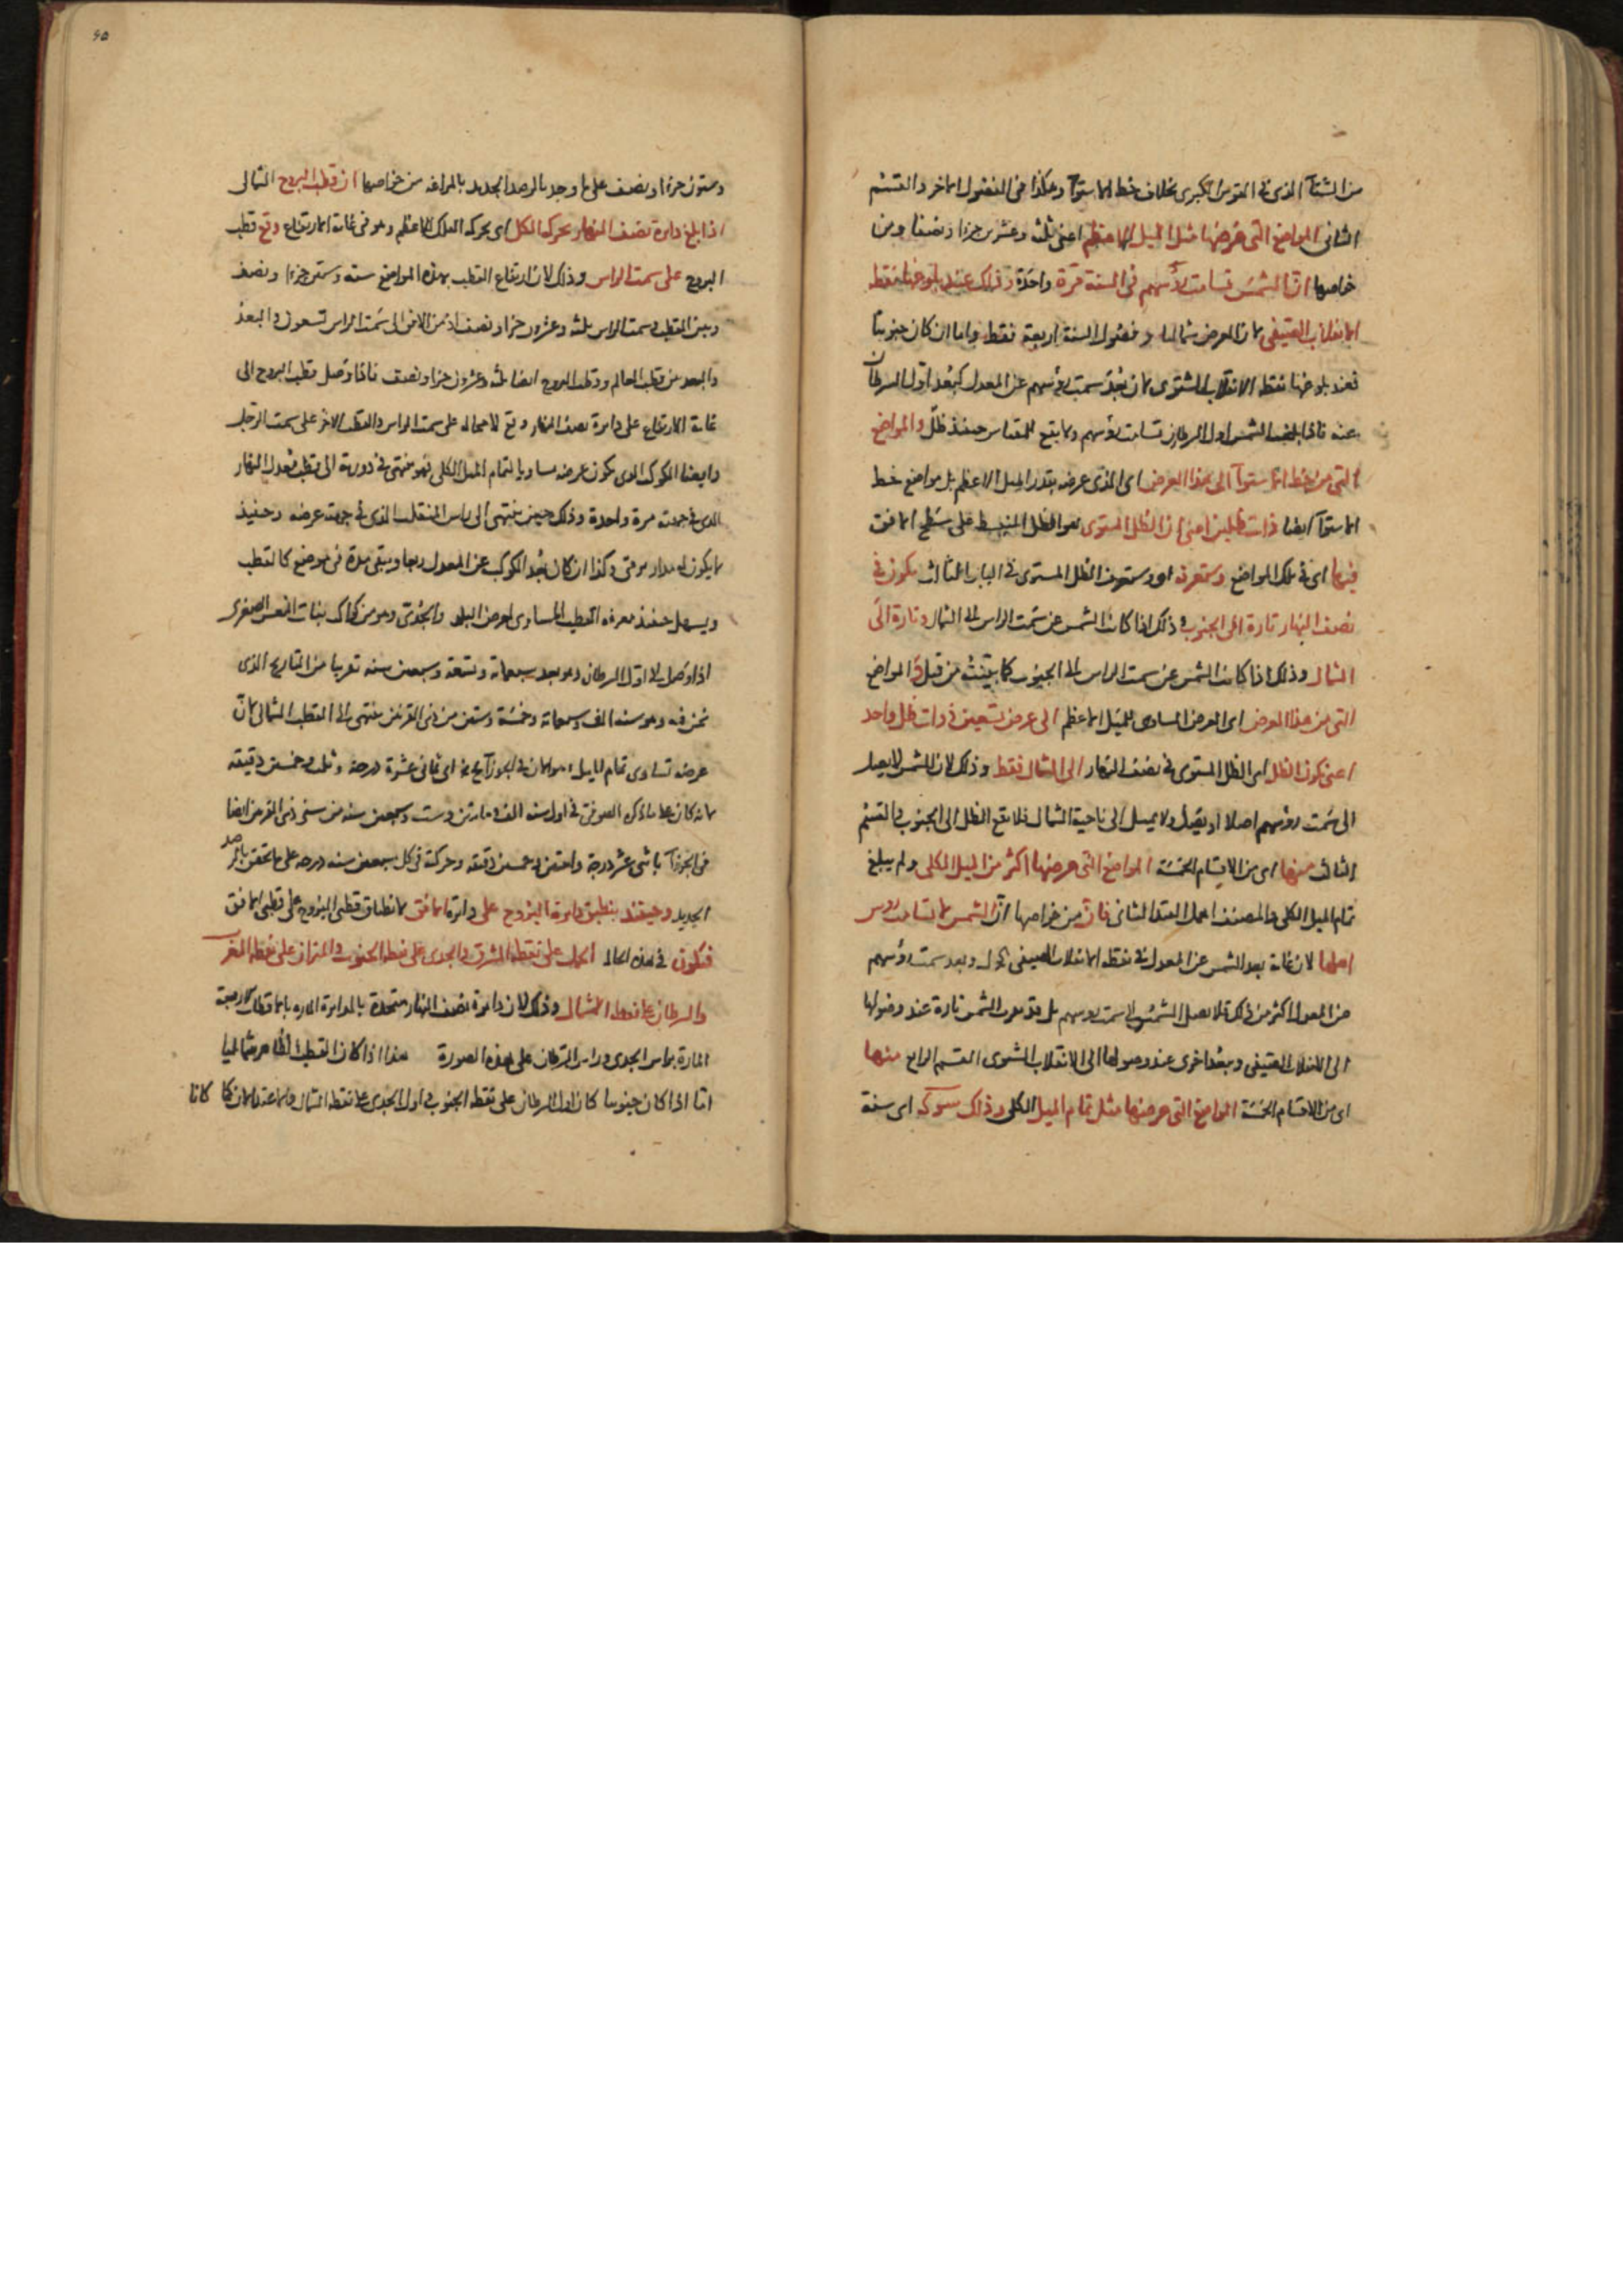 من الشتآ الذى فى القوس الكبرى بخلاف خط الاستوآ وهكذا فى الفصول الاخر والقسم
الثانى المواضع التى عرضها مثل الميل الاعظم اعنى ثلثة وعشرين جزءا ونصفا ومن
خواصها ان الشمس تسامت رؤسهم فى السنة مرة واحدة وذلك عند بلوغها نقطة
الانقلاب الصيفى لان العرض شمالى وفصول السنة اربعة فقط واما ان كان جنوبيا
فعند بلوغها نقطة الانقلاب الشتوى لان بعد سمت رؤسهم عن المعدل كبعد اول السرطان
عنه فاذا بلغت الشمس اول السرطان تسامت رؤسهم ولا يقع للمقياس حينئذ ظل والمواضع
التى من خط الاستوآ الى هذا العرض اى الذى عرضه بقدر الميل الاعظم بل مواضع خط
الاستوآ ايضا ذات ظلين اعنى ان الظل المستوى هو الظل المنبسط على سطح الافق
فيها اى فى تلك المواضع وستعرف الظل المستوى فى الباب الثالث يكون فى
نصف النهار تارة الى الجنوب وذلك اذا كانت الشمس عن سمت الراس الى الشمال وتارة الى
الشمال وذلك اذا كانت الشمس عن سمت الراس الى الجنوب كما بينته من قبل والمواضع
التى من هذا العرض اى العرض المساوى للميل الاعظم الى عرض تسعين ذوات ظل واحد
اعنى يكون الظل اى الظل المستوى فى نصف النهار الى الشمال فقط وذلك لان الشمس لا يصل
الى سمت رؤسهم اصلا او يصل ولا يميل الى ناحية الشمال فلا يقع الظل الى الجنوب والقسم
الثالث منها اى من الاقسام الخمسة المواضع التى عرضها اكثر من الميل الكلى ولم يبلغ
تمام الميل الكلى والمصنف اهمل القيد الثانى فان من خواصها ان الشمس لا تسامت رؤس
اهلها لان غاية بعد الشمس عن المعدل فى نقطة الانقلاب الصيفى وبعد سمت رؤسهم
عن المعدل اكثر من ذلك فلا يصل الشمس الى سمت رؤسهم بل قد يقرب الشمس تارة عند وصولها
الى الانقلاب الصيفى ويبعد اخرى عند وصولها الى الانقلاب الشتوى القسم الرابع منها
اى من الاقسام الخمسة المواضع التى عرضها مثل تمام الميل الكلى وذلك سو كه اى ستة
وستون جزءا ونصف على ما وجد بالرصد الجديد بالمراغة من خواصها ان قطب البروج الشمالى
اذا بلغ دايرة نصف النهار بحركة الكل اى بحركة الفلك الاعظم وهو فى غاية الارتفاع وقع قطب
البروج على سمت الراس وذلك لان ارتفاع القطب بهذه المواضع ستة وستين جزءا ونصف
وبين القطب وسمت الراس ثلثة وعشرون جزءا ونصف اذ من الافق الى سمت الراس تسعون والبعد
والبعد بين قطب العالم وقطب البروج ايضا ثلثة وعشرون جزءا ونصف فاذا وصل قطب البروج الى
غاية الارتفاع على دايرة نصف النهار وقع لا محالة على سمت الراس والقطب الاخر على سمت الرجل
وايضا الكوكب الذى يكون عرضه مساويا لتمام الميل الكلى فهو ينتهى فى دورة الى قطب معدل النهار
الذى فى جهته مرة واحدة وذلك حين ينتهى الى راس المنقلب الذى فى جهة عرضه وحينئذ
لا يكون له مدار يومى وكذا ان كان بعد الكوكب عن المعدل ربعا ويبقى مدة فى موضع كالقطب
ويسهل حينئذ معرفة القطب المساوى لعرض البلد والجدى وهو من كواكب بنات النعش الصغرى
اذا وصل الى اول السرطان وهو بعد سبعمائة وتسعة وسبعين سنة تقريبا من التاريخ الذى
نحن فيه وهو سنة الف وسبعمائة وخمسة وستين من ذى القرنين ينتهى الى القطب الشمالى لان
عرضه تساوى تمام الميل وهو الان فى الجوزآ اى ثمانى عشرة درجة وثلث وخمسين دقيقة
لانه كان على ما ذكره الصوفى فى اول سنة الف ومايتين وست وسبعين سنة من سنى ذى القرنين ايضا
فى الجوزآ باثنى عشر درجة واحدى وخمسين دقيقة وحركته فى كل سبعين سنة درجة على ما تحقق بالرصد
الجديد وحينئذ ينطبق دايرة البروج على دايرة الافق لانطباق قطبى البروج على قطبى الافق
فيكون فى هذه الحالة الحمل على نقطة المشرق والجدى على نقطة الجنوب والميزان على نقطة المغرب
والسرطان على نقطة الشمال وذلك لان دايرة نصف النهار متحدة بالدايرة المارة بالاقطاب الاربعة
المارة براس الجدى وراس السرطان على هذه الصورة هذا اذا كان القطب الظاهر شماليا
اما اذا كان جنوبيا كان اول السرطان على نقطة الجنوب واول الجدى على نقطة الشمال كانا